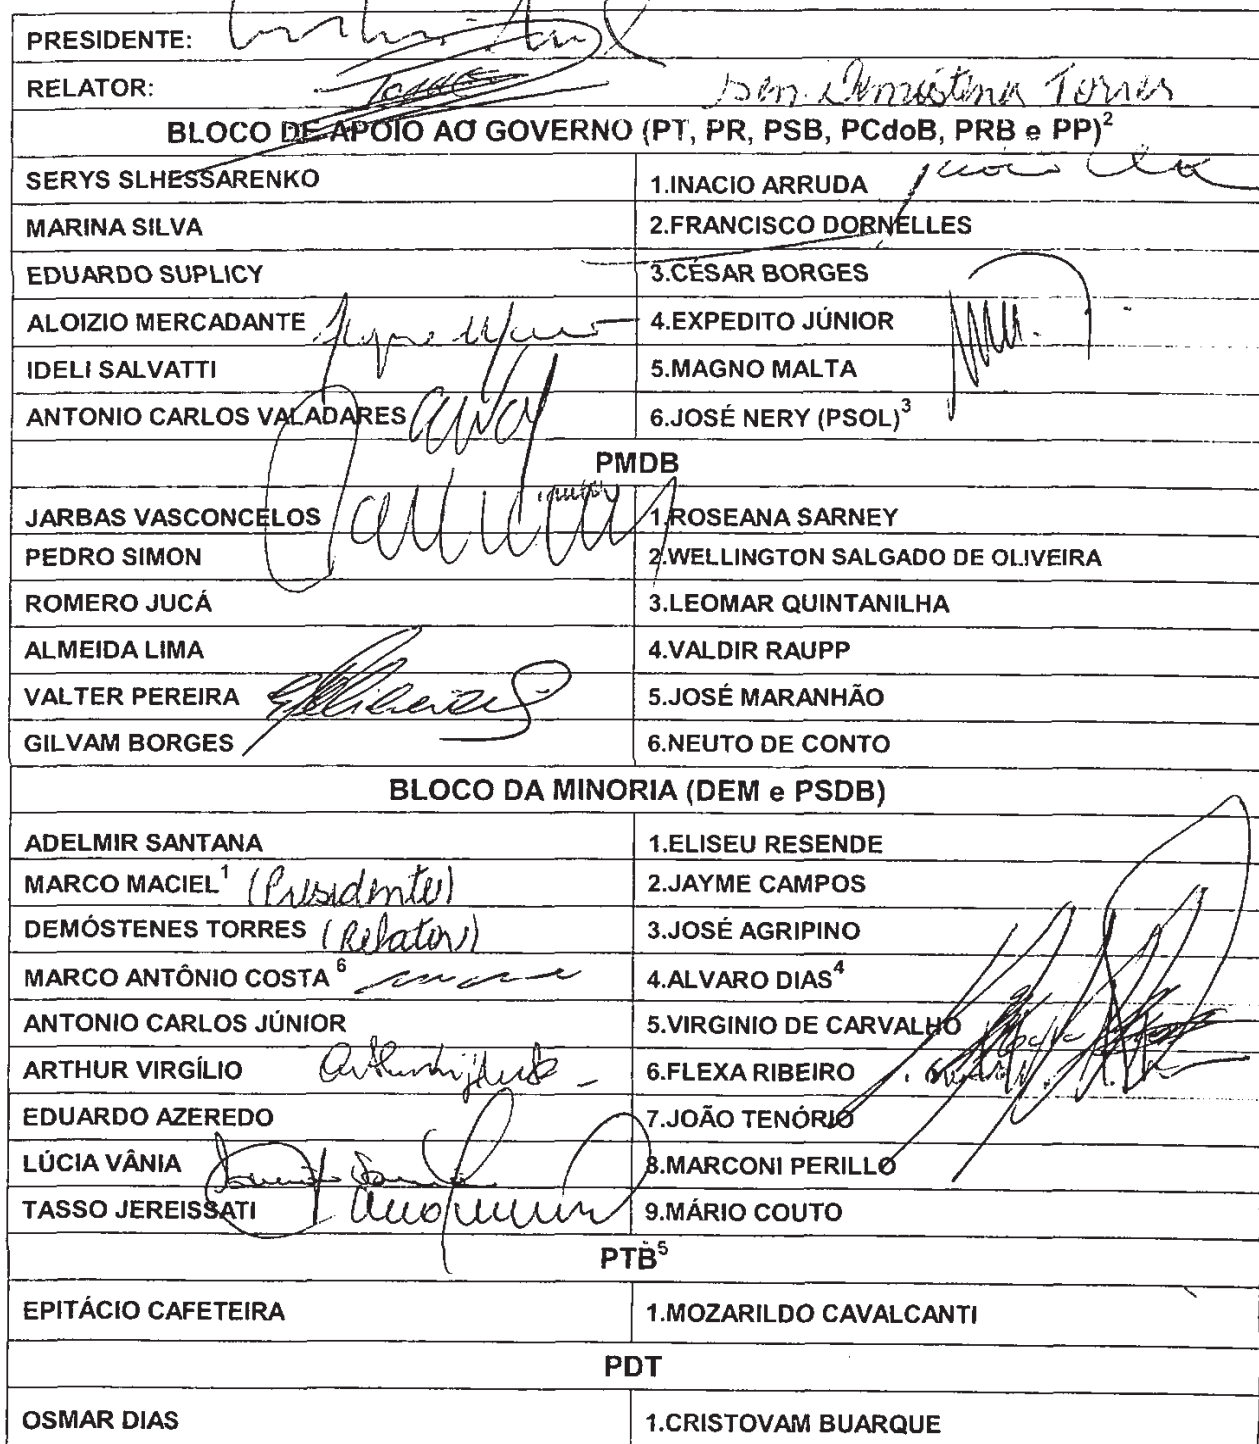 PRESIDENTE:
RELATOR: Sen. Demóstenes Torres
BLOCO DE APOIO AO GOVERNO (PT, PR, PSB, PCdoB, PRB e PP)²
SERYS SLHESSARENKO 1.INACIO ARRUDA
MARINA SILVA 2.FRANCISCO DORNELLES
EDUARDO SUPLICY 3.CÉSAR BORGES
ALOIZIO MERCADANTE 4.EXPEDITO JÚNIOR
IDELI SALVATTI 5.MAGNO MALTA
ANTONIO CARLOS VALADARES 6.JOSÉ NERY (PSOL)³
PMDB
JARBAS VASCONCELOS 1.ROSEANA SARNEY
PEDRO SIMON 2.WELLINGTON SALGADO DE OLIVEIRA
ROMERO JUCÁ 3.LEOMAR QUINTANILHA
ALMEIDA LIMA 4.VALDIR RAUPP
VALTER PEREIRA 5.JOSÉ MARANHÃO
GILVAM BORGES 6.NEUTO DE CONTO
BLOCO DA MINORIA (DEM e PSDB)
ADELMIR SANTANA 1.ELISEU RESENDE
MARCO MACIEL¹ (Presidente) 2.JAYME CAMPOS
DEMÓSTENES TORRES (Relator) 3.JOSÉ AGRIPINO
MARCO ANTÔNIO COSTA⁶ 4.ALVARO DIAS⁴
ANTONIO CARLOS JÚNIOR 5.VIRGINIO DE CARVALHO
ARTHUR VIRGÍLIO 6.FLEXA RIBEIRO
EDUARDO AZEREDO 7.JOÃO TENÓRIO
LÚCIA VÂNIA 8.MARCONI PERILLO
TASSO JEREISSATI 9.MÁRIO COUTO
PTB⁵
EPITÁCIO CAFETEIRA 1.MOZARILDO CAVALCANTI
PDT
OSMAR DIAS 1.CRISTOVAM BUARQUE